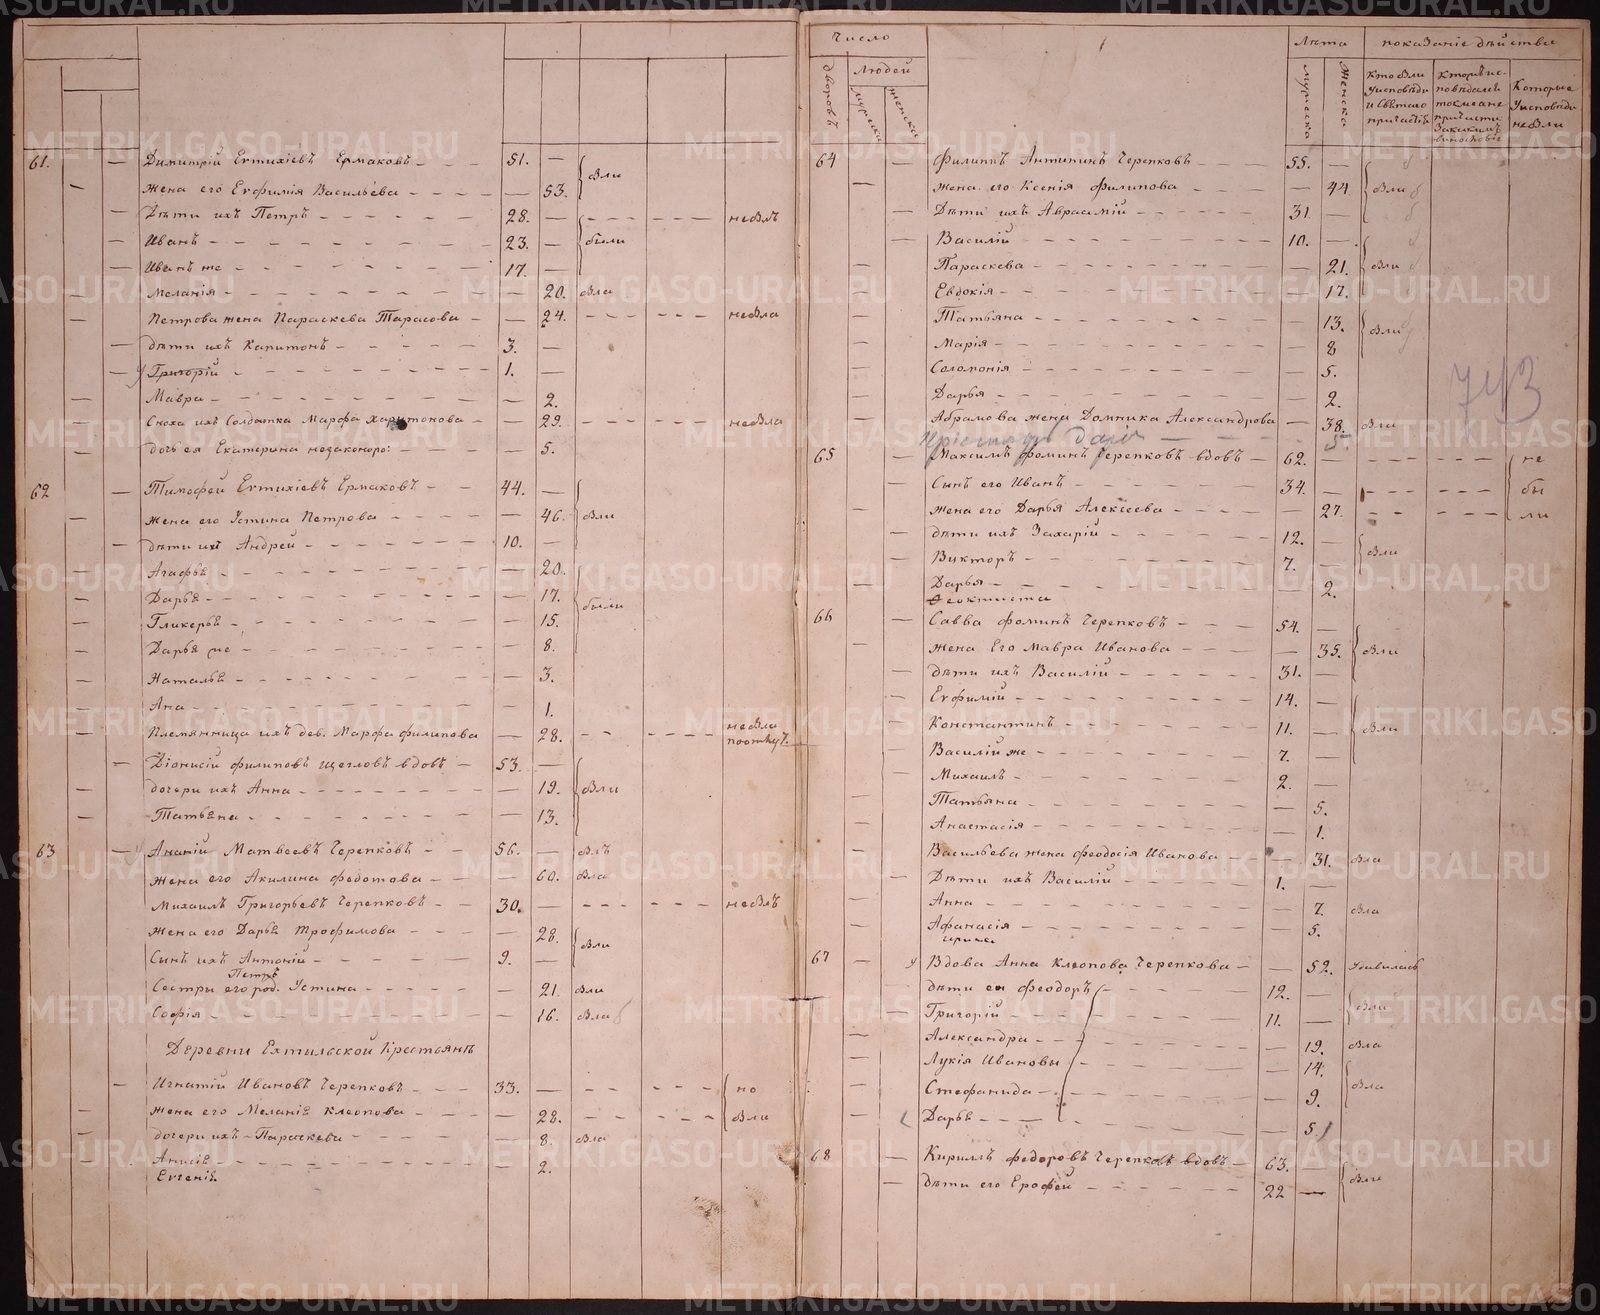 61. Димитрій Евтихіевъ Ермаковъ 51.
жена его Евфимія Васильева 53. Были
Дѣти ихъ Петръ 28. не былъ
Иванъ 23. были
Иванъ же 17.
Меланія 20. была
Петрова жена Параскева Тарасова 24. не была
дѣти ихъ Капитонъ 3.
Григорій 1.
Мавра 2.
Сноха ихъ Солдатка Марфа Харитонова 29. не была
дочь ея Екатерина незаконоро: 5.
62 Тимофей Евтихіевъ Ермаковъ 44.
жена его Устина Петрова 46. были
дѣти ихъ Андрей 10.
Агафья 20.
Дарья 17. были
Гликерья 15.
Дарья же 8.
Наталья 3.
Ана 1.
Племянница ихъ дев. Марфа Филипова 28. не была
Діонисій Филиповъ Щегловъ вдовъ 53.
дочери ихъ Анна 19. были
Татьяна 13.
63 Ананій Матвеевъ Черепковъ 56. былъ
жена его Акилина Федотова 60. была
Михаилъ Григорьевъ Черепковъ 30. не былъ
жена его Дарья Трофимова 28. были
Сынъ ихъ Антоній 9.
Петръ
Сестри его род. Устина 21. были
Софія 16. была
Деревни Ехтильской Крестьянъ
Игнатій Ивановъ Черепковъ 33. не
жена его Меланія Клеопова 28. были
дочери ихъ Параскева 8. была
Анисія 2.
Евгенія
Число Лѣта показаніе дѣйства
дворовъ Людей мужска женска
мужска Женска
Кто были Уисповѣди и Святаго причастія
Которые Уисповѣди небыли
64 Филиппъ Антипинъ Черепковъ 55.
жена его Ксенія Филипова 44 были
Дѣти ихъ Аврамій 31.
Василій 10.
Параскева 21. были
Евдокія 17.
Татьяна 13. были
Марія 8
Соломонія 5.
Дарья 2.
Абрамова жена Домника Александрова 38. были
743
65 Максимъ Фоминъ Черепковъ вдовъ 62. не
Сынъ его Иванъ 34. бы
жена его Дарья Алексеева 27. ли
дѣти ихъ Захарій 12. были
Викторъ 7.
Дарья 2.
Феоктиста
66 Савва Фоминъ Черепковъ 54.
жена Его Мавра Иванова 35. были
дѣти ихъ Василій 31.
Евфимій 14.
Константинъ 11. были
Василій же 7.
Михаилъ 2.
Татьяна 5.
Анастасія 1.
Васильева жена Феодосія Иванова 31. была
Дѣти ихъ Василій 1.
Анна 7. была
Афанасія 5.
67 Вдова Анна Клеопова Черепкова 52.
дѣти ея Феодоръ 12. были
Григорій 11.
Александра 19. была
Лукія Ивановы 14.
Стефанида 9. была
Дарья 5.
68 Кириллъ Федоровъ Черепковъ вдовъ 63. были
дѣти его Ерофей 22